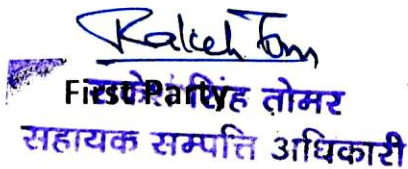 Rakesh Tom
First Party
राकेश सिंह तोमर
सहायक सम्पत्ति अधिकारी